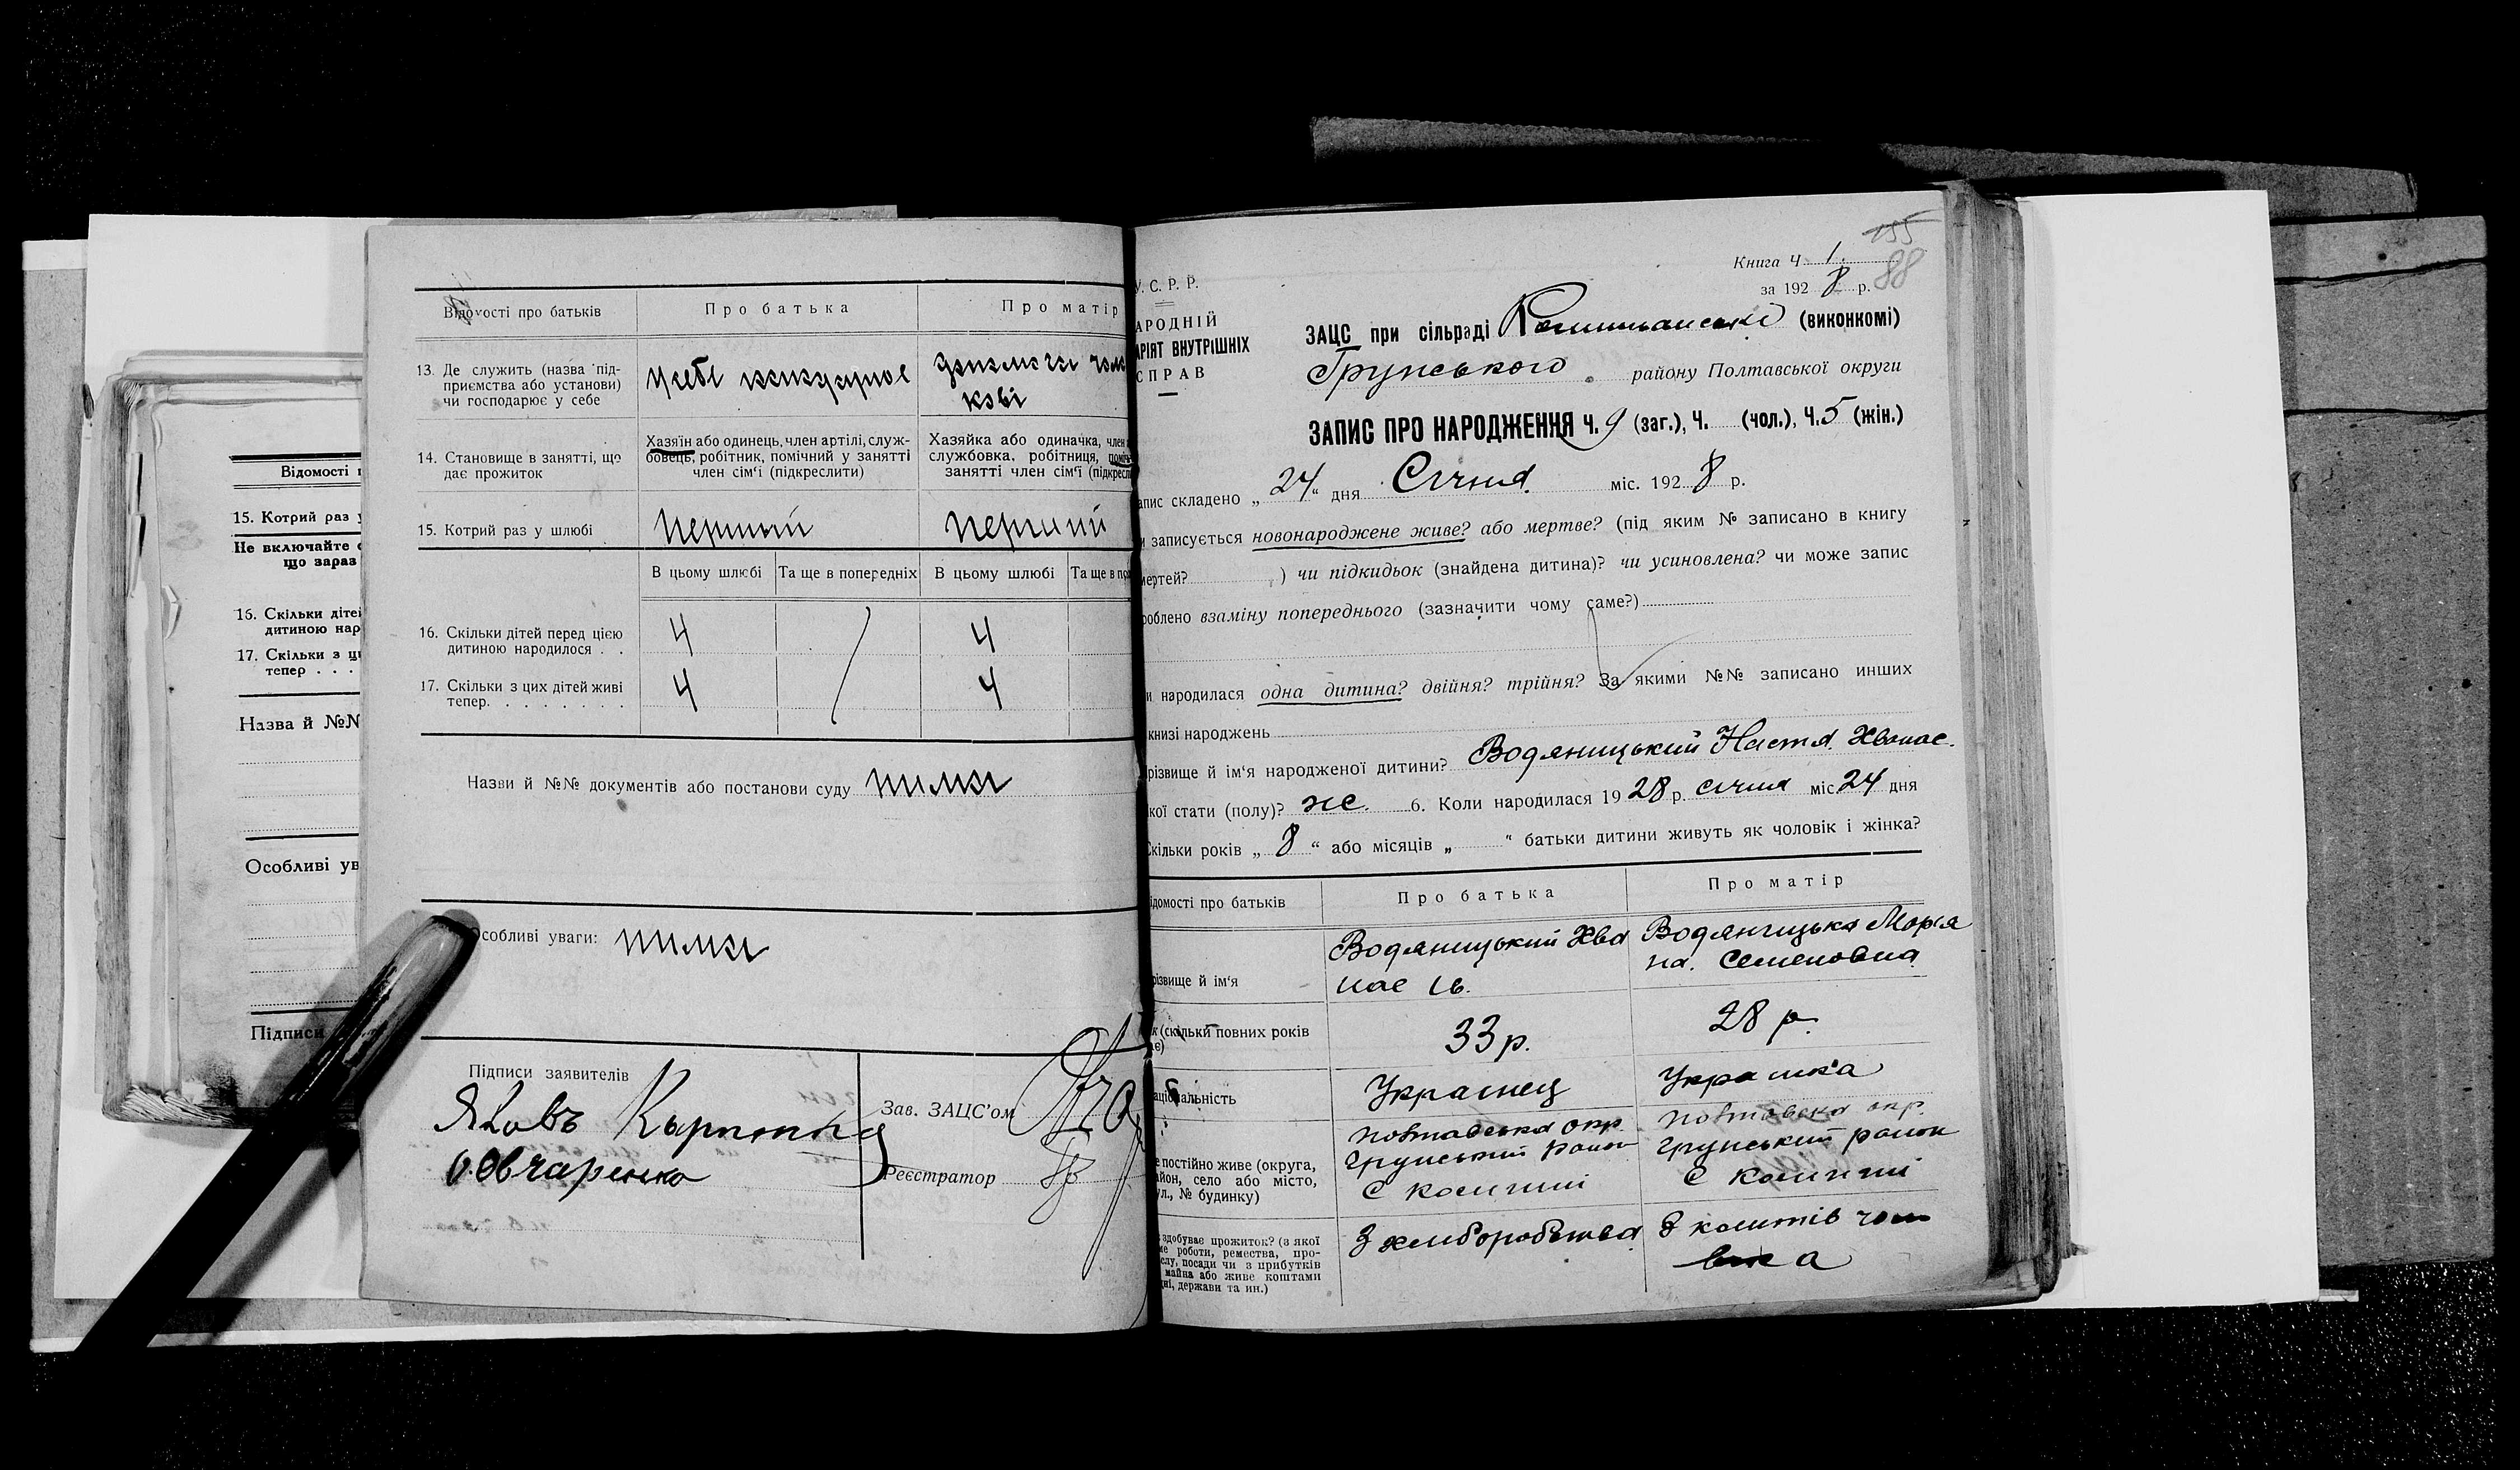 Відомості п
15. Котрий раз у
Не включайте
що зараз
16. Скільки дітей
дитиною нар
17. Скільки з ци
тепер . . .
Назва й №№
Особливі ув
Підписи
Відомості про батьків
Про батька
Про матір
13. Де служить (назва під-
приємства або установи)
чи господарює у себе
кові
14. Становище в занятті, що
дає прожиток
Хазяїн або одинець, член артілі, служ-
бовець, робітник, помічний у занятті
член сім'ї (підкреслити)
Хазяйка або одиначка, член
службовка, робітниця, поміч
занятті член сім'ї (підкресли
15. Котрий раз у шлюбі
першый
перший
В цьому шлюбі
Та ще в попередніх
В цьому шлюбі
Та ще в по
16. Скільки дітей перед цією
дитиною народилося . .
4
4
17. Скільки з цих дітей живі
тепер. . . . . . . .
4
4
Назви й №№ документів або постанови суду
Особливі уваги:
Підписи заявителів
Яковъ
Овчаренко
Зав. ЗАЦС'ом
Реєстратор
155
88
Книга Ч. 1.
за 1928 р.
У. С. Р. Р.
АРОДНІЙ
АРІЯТ ВНУТРІШНІХ
СПРАВ
ЗАЦС при сільраді (виконкомі)
Грунського району Полтавської округи
ЗАПИС ПРО НАРОДЖЕННЯ Ч. 9 (заг.), Ч. (чол.), Ч. 5 (жін.)
апис складено „ 24 “ дня Січня міс. 1928 р.
и записується новонароджене живе? або мертве? (під яким № записано в книгу
мертей? ) чи підкидьок (знайдена дитина)? чи усиновлена? чи може запис
роблено взаміну попереднього (зазначити чому саме?)
и народилася одна дитина? двійня? трійня? За якими №№ записано инших
книзі народжень
різвище й ім'я народженої дитини? Водяницький Настя Хванас.
кої стати (полу)? ж. 6. Коли народилася 1928 р. січня міс 24 дня
Скільки років „ 8 “ або місяців „ “ батьки дитини живуть як чоловік і жінка?
ідомості про батьків
Про батька
Про матір
різвище й ім'я
Водяницький Хва
нас Ів.
Водяницька Марія
на. Семеновна
к (скільки повних років
є)
33 р.
28 р.
аціональність
Українец
Українка
е постійно живе (округа,
йон, село або місто,
ул., № будинку)
Полтавська окр.
Грунський район
Полтавська окр.
Грунський район
здобуває прожиток? (з якої
ме роботи, ремества, про-
слу, посади чи з прибутків
майна або живе коштами
ні, держави та ин.)
З хліборобства
З коштів чол
а